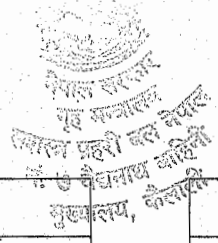 नेपाल सरकार
गृह मन्त्रालय
सशस्त्र प्रहरी बल नेपाल
वैद्यनाथ बाहिनी
मुख्यालय, कैलाली